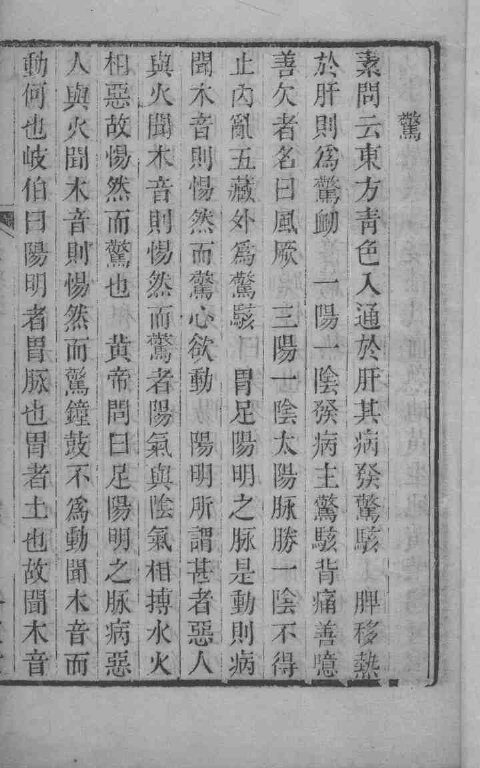 驚
素問云東方青色入通於肝其病發驚駭　脾移熱
於肝則為驚衄　一陽一陰發病主驚駭背痛善噫
善欠者名曰風厥　三陽一陰太陽脉勝一陰不得
止內亂五藏外為驚駭　胃足陽明之脉是動則病
聞木音則惕然而驚心欲動　陽明所謂甚者惡人
與火聞木音則惕然而驚者陽氣與陰氣相搏水火
相惡故惕然而驚也　黃帝問曰足陽明之脉病惡
人與火聞木音則惕然而驚鐘鼓不為動聞木音而
動何也岐伯曰陽明者胃脉也胃者土也故聞木音